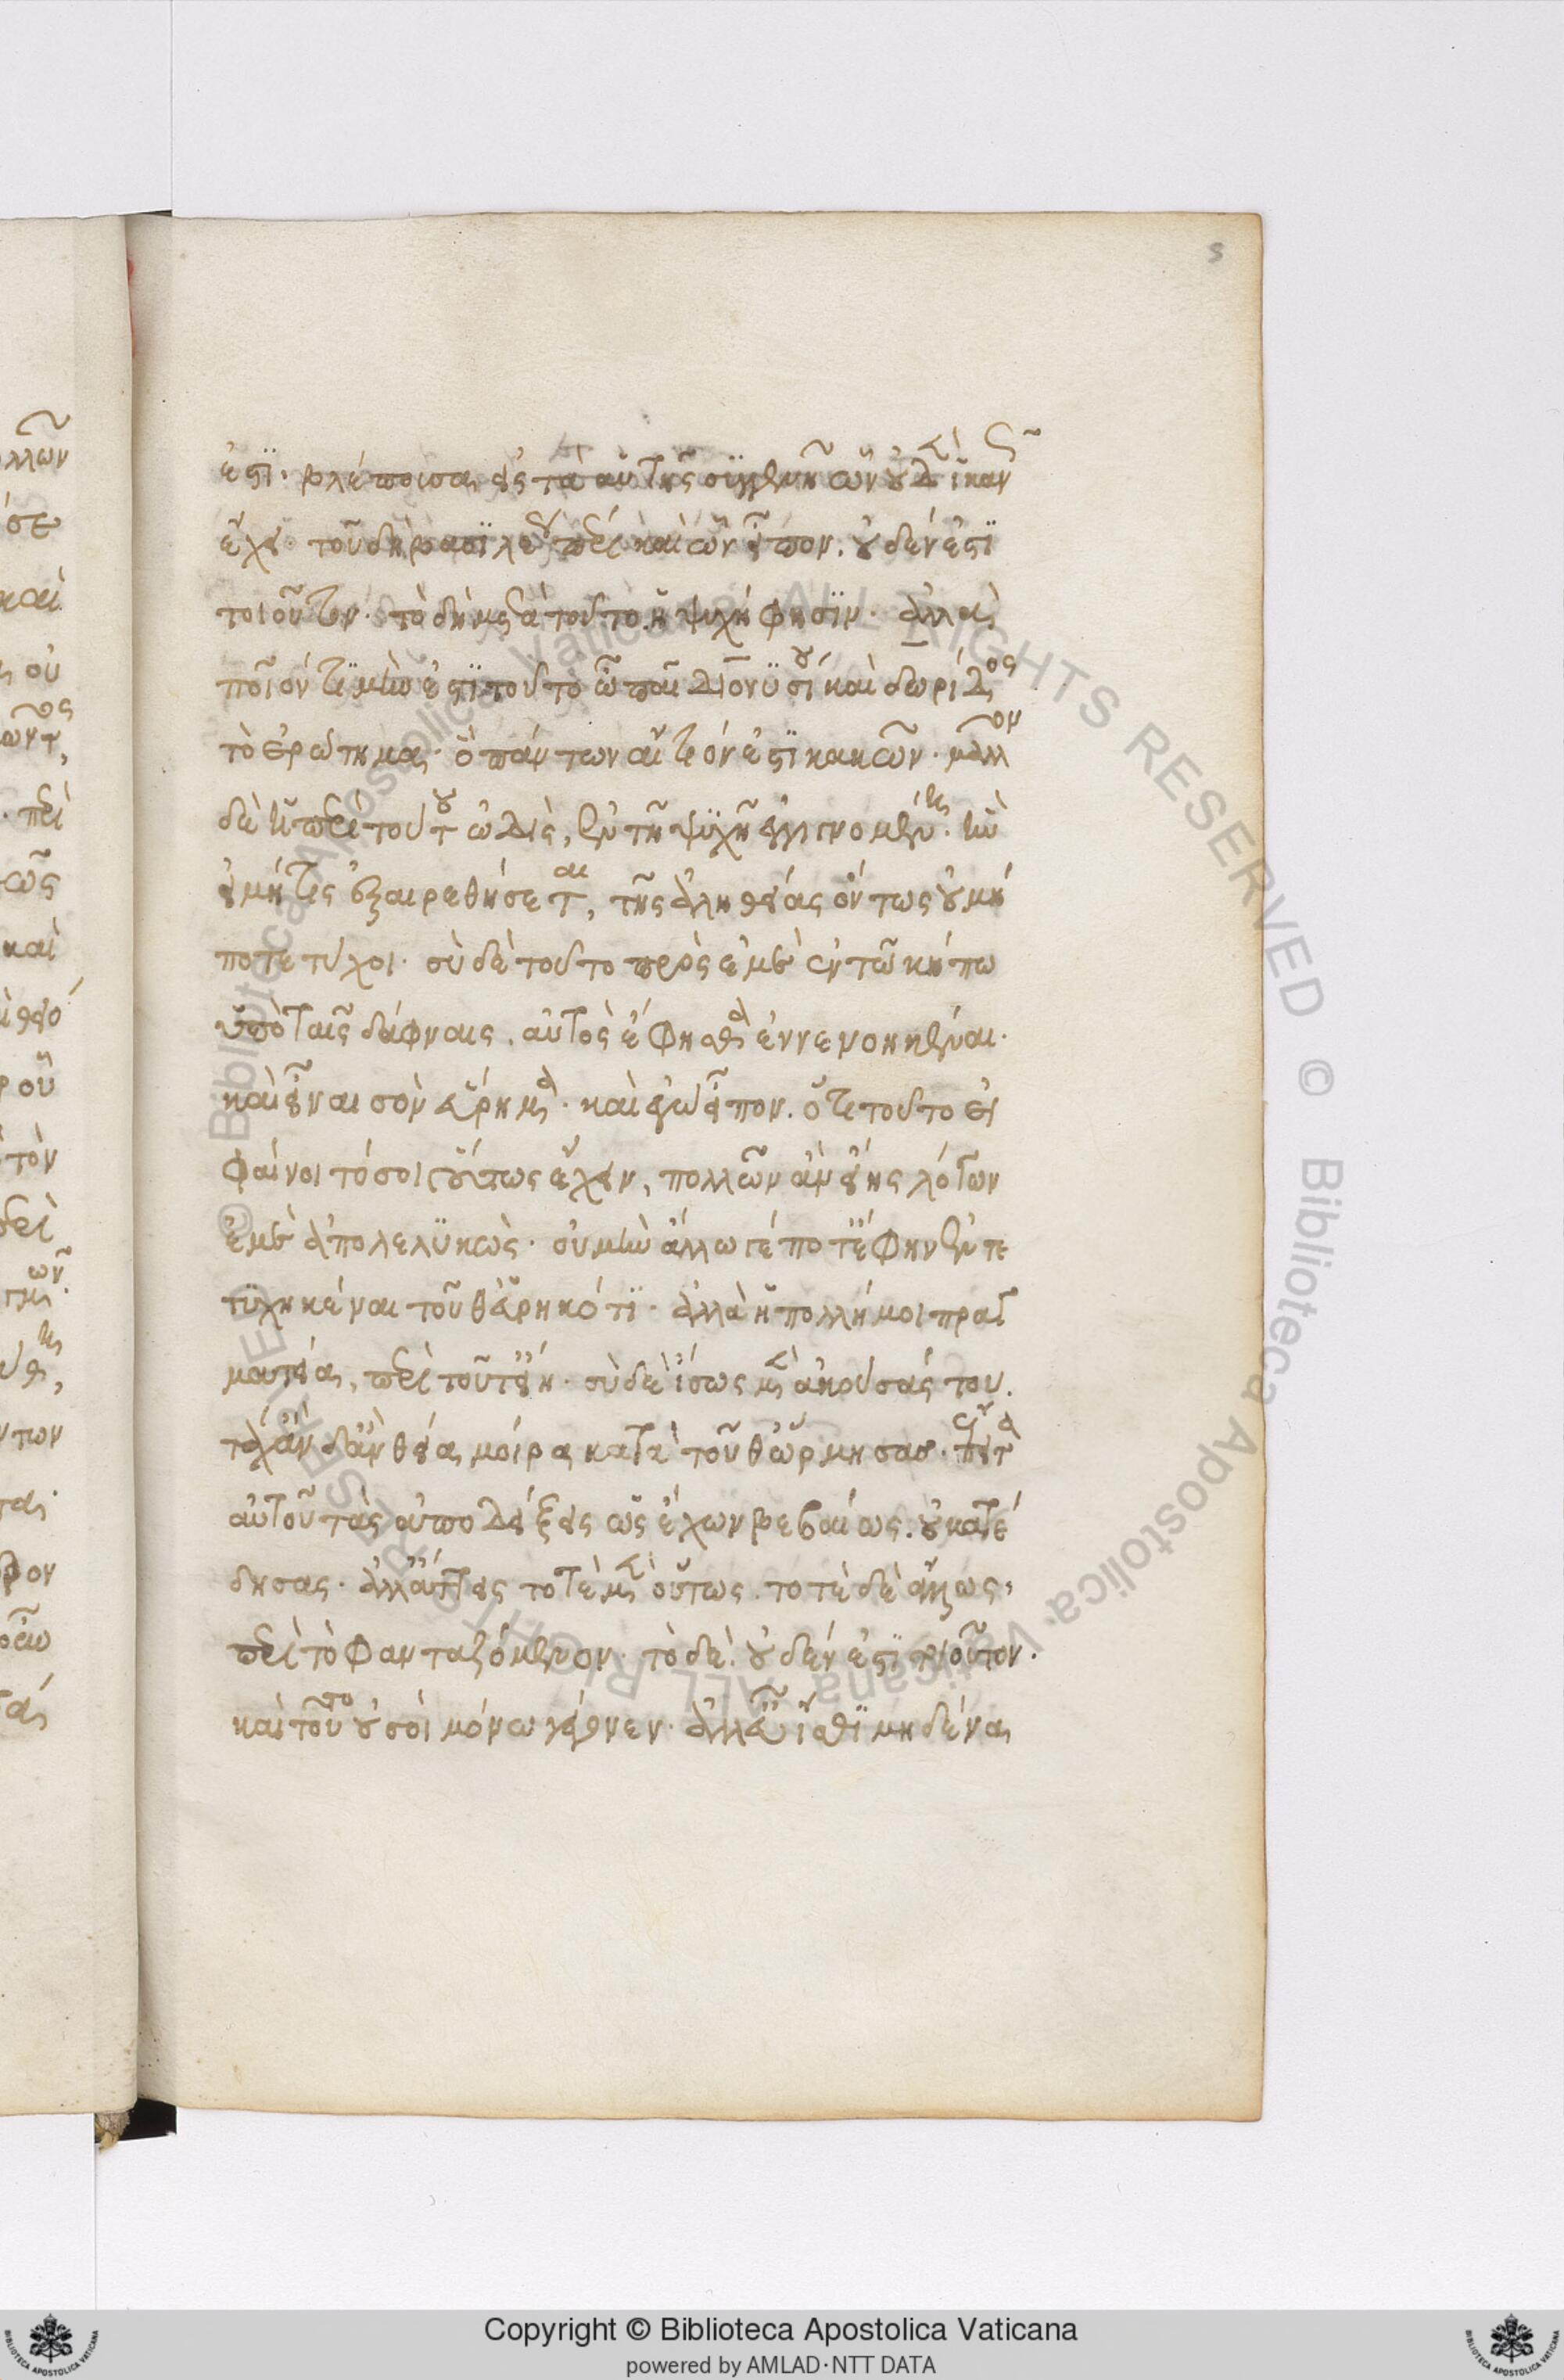 ἐστὶ· βλέπουσα εἰς τὰ αὑτῆς συγγενῆ ὧν οὐδὲν ἱκανῶς
ἔχει· τοῦ δὴ βασιλέως περὶ καὶ ὧν εἶπον. οὐδέν ἐστι
τοιοῦτον· τὸ δὴ μετὰ τοῦτο ἡ ψυχή φησιν· ἀλλὰ
ποῖόν τι μὴν ἐστὶ τοῦτο ὦ παῖ Διονυσίου καὶ δωρίδος
τὸ ἐρώτημα· ὃ πάντων αἴτιόν ἐστι κακῶν· μᾶλλον
δὲ ἡ περὶ τούτου ὠδὶς, ἐν τῇ ψυχῇ ἐγγινομένη· ἣν
εἰ μή τις ἐξαιρεθήσεται, τῆς ἀληθείας ὄντως οὐ μή
ποτε τύχοι· σὺ δὲ τοῦτο πρὸς ἐμὲ ἐν τῷ κήπω
ὑπὸ ταῖς δάφναις. αὐτὸς ἔφησθα ἐννενοηκέναι·
καὶ εἶναι σὸν εὕρημα· καὶ ἐγὼ εἶπον. ὅτι τοῦτο εἰ
φαίνοιτό σοι οὕτως ἔχειν, πολλῶν ἂν εἴης λόγων
ἐμὲ ἀπολελυκὼς· οὐ μὴν ἄλλω γέ ποτ' ἔφην ἐντε
τυχηκέναι τοῦθ' εὑρηκότι· ἀλλὰ ἡ πολλή μοι πραγ
ματεία, περὶ τοῦτ' εἴη· σὺ δὲ ἴσως μὲν ἀκούσάς του.
τάχ' ἂν δ' ἂν θεία μοίρα κατὰ τοῦθ' ὥρμησας· ἔπειτα
αὐτοῦ τὰς ἀποδείξεις ὡς ἔχων βεβαίως. οὐ κατέ
δησας· ἀλλ' ἄττεις τοτὲ μὲν οὕτως. τοτὲ δὲ ἄλλως,
περὶ τὸ φανταζόμενον· τὸ δὲ. οὐδέν ἐστι τοιοῦτον·
καὶ τοῦτο οὐ σοὶ μόνω γέγονεν· ἀλλ' εὖ ἴσθι μηδένα
5
Copyright © Biblioteca Apostolica Vaticana
powered by AMLAD·NTT DATA